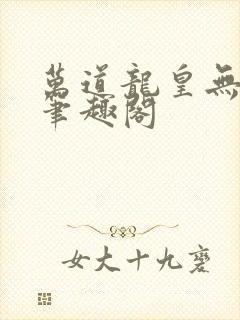 萬道龍皇無
筆趣閣
女大十九變